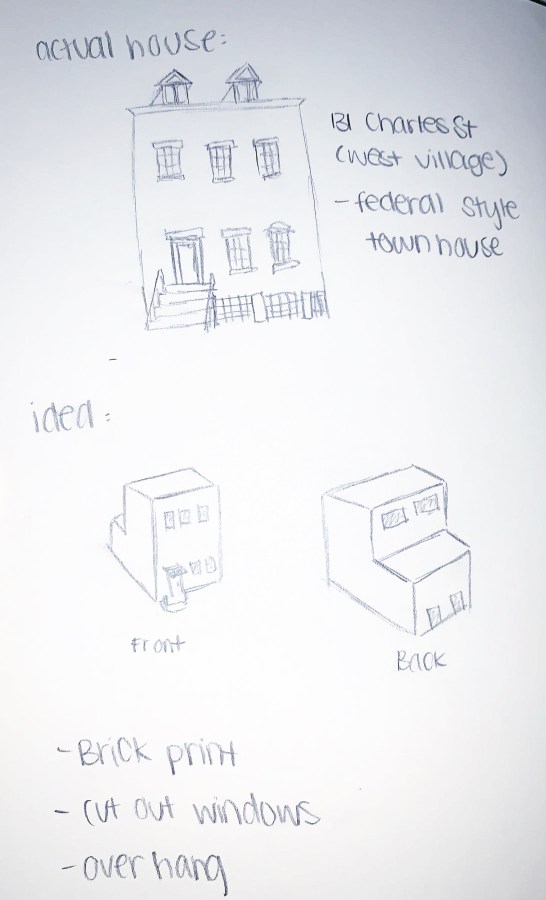 actual house:
131 Charles St
(West village)
- federal style
townhouse
idea:
Front
Back
- Brick print
- cut out windows
- over hang